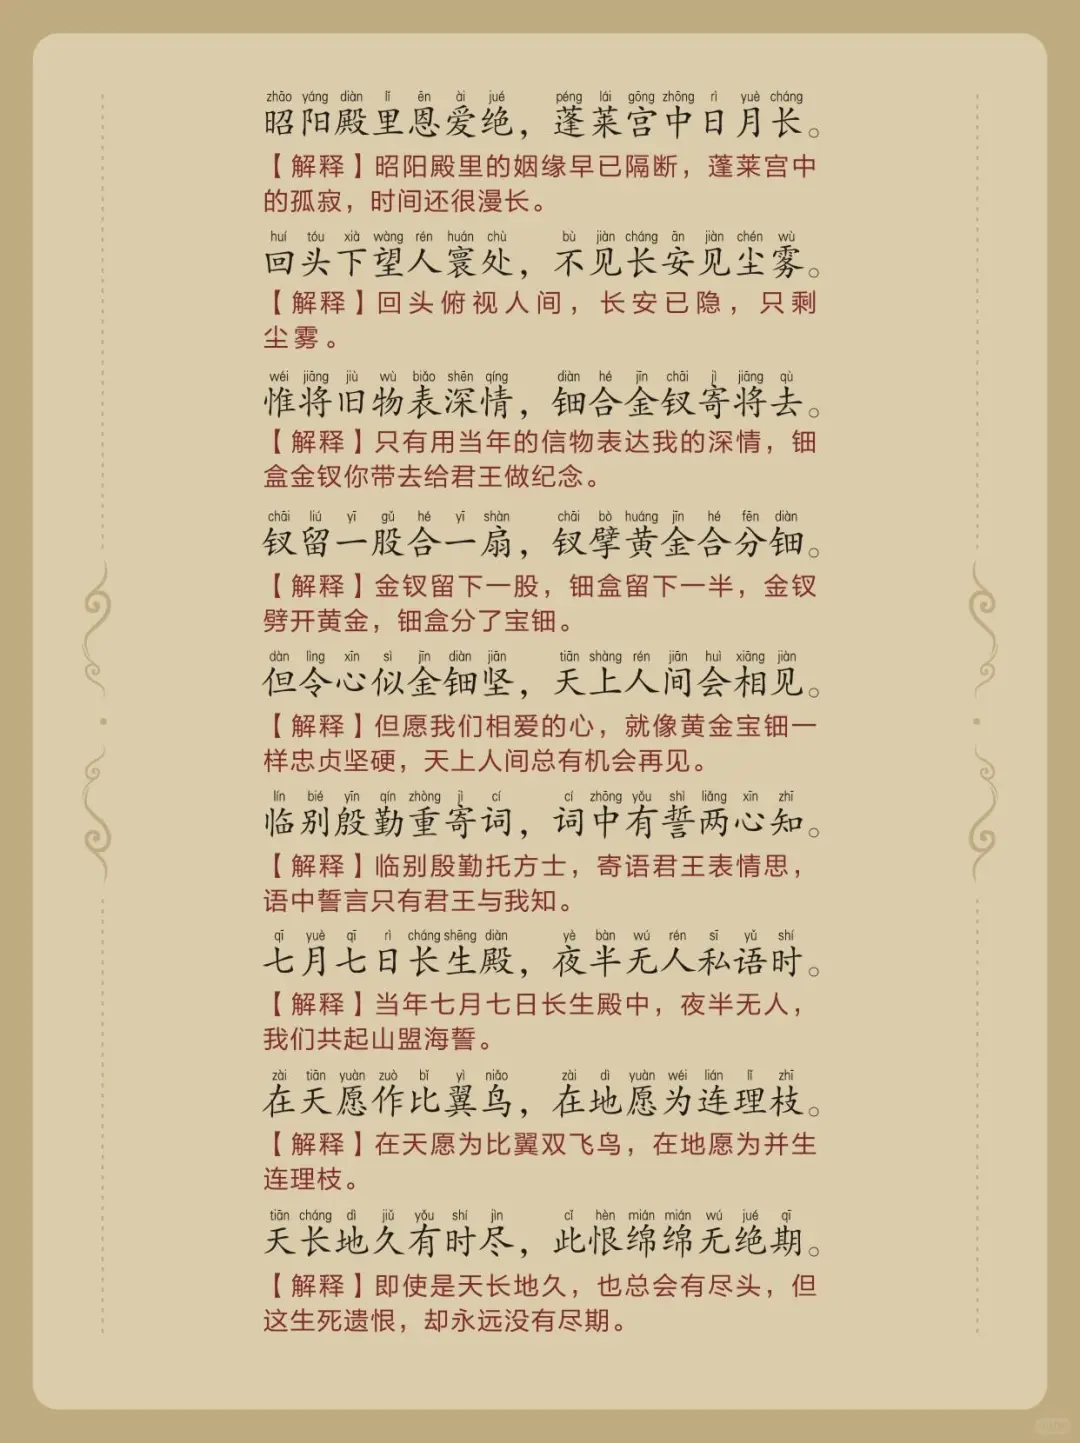 zhāo yáng diàn lǐ ēn ài jué péng lái gōng zhōng rì yuè cháng
昭阳殿里恩爱绝，蓬莱宫中日月长。
【解释】昭阳殿里的姻缘早已隔断，蓬莱宫中
的孤寂，时间还很漫长。
huí tóu xià wàng rén huán chù bù jiàn cháng ān jiàn chén wù
回头下望人寰处，不见长安见尘雾。
【解释】回头俯视人间，长安已隐，只剩
尘雾。
wéi jiāng jiù wù biǎo shēn qíng diàn hé jīn chāi jì jiāng qù
惟将旧物表深情，钿合金钗寄将去。
【解释】只有用当年的信物表达我的深情，钿
盒金钗你带去给君王做纪念。
chāi liú yī gǔ hé yī shàn chāi bò huáng jīn hé fēn diàn
钗留一股合一扇，钗擘黄金合分钿。
【解释】金钗留下一股，钿盒留下一半，金钗
劈开黄金，钿盒分了宝钿。
dàn lìng xīn sì jīn diàn jiān tiān shàng rén jiān huì xiāng jiàn
但令心似金钿坚，天上人间会相见。
【解释】但愿我们相爱的心，就像黄金宝钿一
样忠贞坚硬，天上人间总有机会再见。
lín bié yīn qín zhòng jì cí cí zhōng yǒu shì liǎng xīn zhī
临别殷勤重寄词，词中有誓两心知。
【解释】临别殷勤托方士，寄语君王表情思，
语中誓言只有君王与我知。
qī yuè qī rì cháng shēng diàn yè bàn wú rén sī yǔ shí
七月七日长生殿，夜半无人私语时。
【解释】当年七月七日长生殿中，夜半无人，
我们共起山盟海誓。
zài tiān yuàn zuò bǐ yì niǎo zài dì yuàn wéi lián lǐ zhī
在天愿作比翼鸟，在地愿为连理枝。
【解释】在天愿为比翼双飞鸟，在地愿为并生
连理枝。
tiān cháng dì jiǔ yǒu shí jìn cǐ hèn mián mián wú jué qī
天长地久有时尽，此恨绵绵无绝期。
【解释】即使是天长地久，也总会有尽头，但
这生死遗恨，却永远没有尽期。